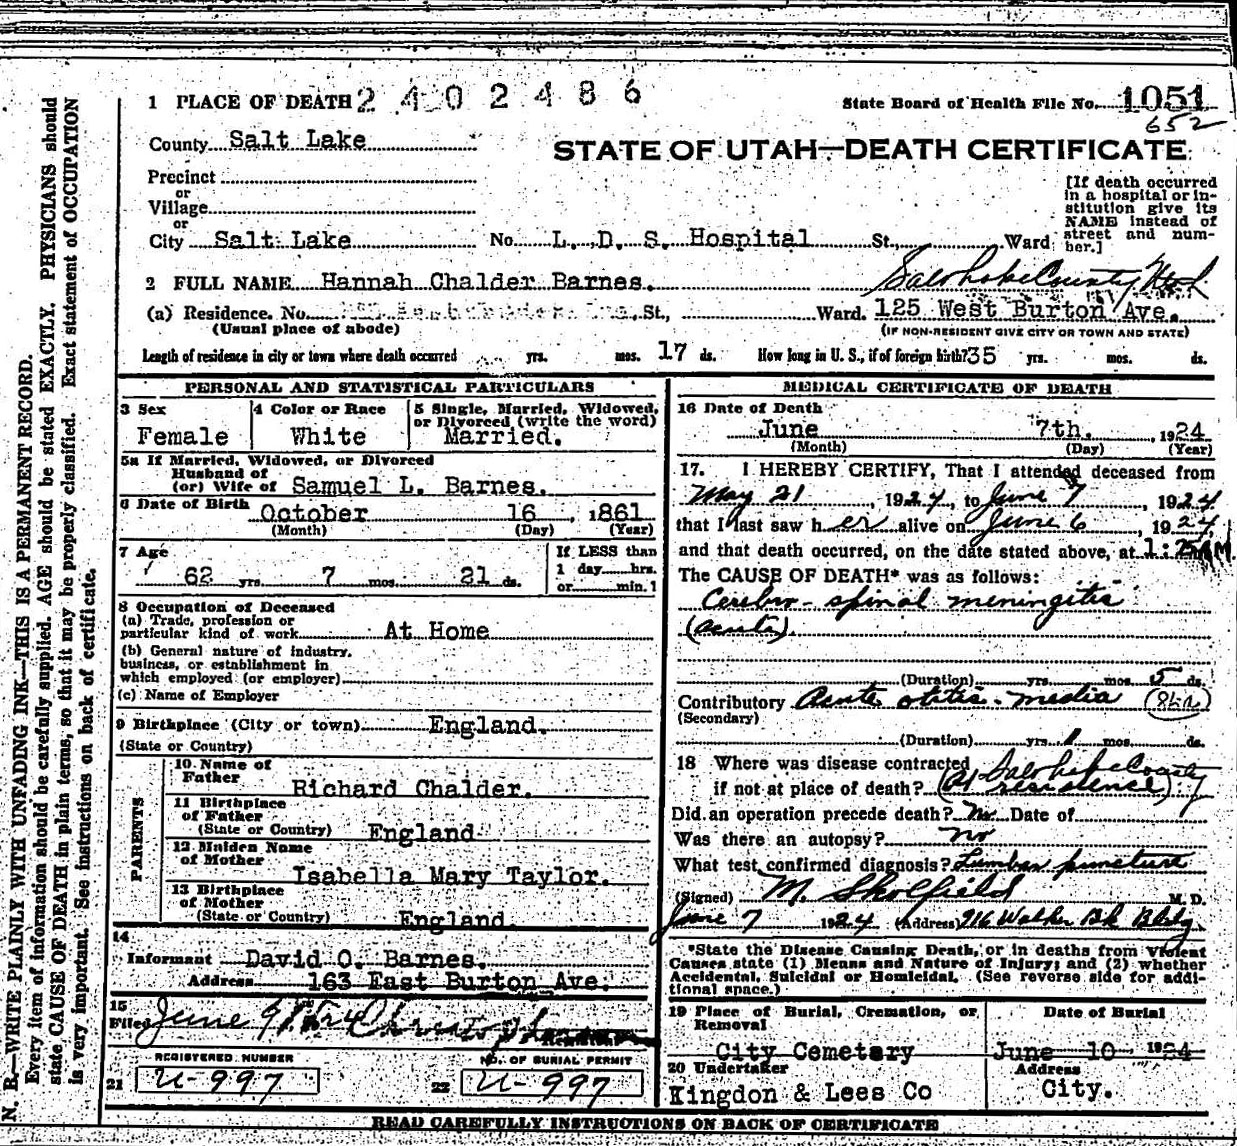 1 PLACE OF DEATH 2402486
State Board of Health File No. 1051
652
County Salt Lake
STATE OF UTAH—DEATH CERTIFICATE
Precinct
or
Village
or
City Salt Lake No. L. D. S. Hospital St., Ward
[If death occurred
in a hospital or in-
stitution give its
NAME instead of
street and num-
ber.]
2 FULL NAME Hannah Chalder Barnes.
Salt Lake County
(a) Residence. No. St., Ward. 125 West Burton Ave.
(Usual place of abode)
(IF NON-RESIDENT GIVE CITY OR TOWN AND STATE)
Length of residence in city or town where death occurred yrs. mos. 17 ds. How long in U. S., if of foreign birth? 35 yrs. mos. ds.
PERSONAL AND STATISTICAL PARTICULARS
3 Sex
Female
4 Color or Race
White
5 Single, Married, Widowed,
or Divorced (write the word)
Married.
5a If Married, Widowed, or Divorced
Husband of
(or) Wife of Samuel L. Barnes.
6 Date of Birth October 16, 1861
(Month) (Day) (Year)
7 Age
62 yrs. 7 mos. 21 ds.
If LESS than
1 day hrs.
or min.
8 Occupation of Deceased
(a) Trade, profession or
particular kind of work At Home
(b) General nature of industry,
business, or establishment in
which employed (or employer)
(c) Name of Employer
9 Birthplace (City or town) England.
(State or Country)
PARENTS
10 Name of
Father Richard Chalder.
11 Birthplace
of Father
(State or Country) England
12 Maiden Name
of Mother Isabella Mary Taylor.
13 Birthplace
of Mother
(State or Country) England.
14
Informant David O. Barnes.
Address 163 East Burton Ave.
15
Filed June 9
REGISTERED NUMBER
21 U-997
NO. OF BURIAL PERMIT
22 U-997
MEDICAL CERTIFICATE OF DEATH
16 Date of Death
June 7th. , 1924
(Month) (Day) (Year)
17. I HEREBY CERTIFY, That I attended deceased from
May 21, 1924, to June 7, 1924
that I last saw her alive on June 6, 1924,
and that death occurred, on the date stated above, at M.
The CAUSE OF DEATH* was as follows:
Cerebro-spinal meningitis
(acute).
(Duration) yrs. mos. 5 ds.
Contributory Acute otitis-media
(Secondary)
(Duration) yrs. 1 mos. ds.
18 Where was disease contracted Salt Lake County
if not at place of death? (At residence)
Did an operation precede death? No Date of
Was there an autopsy? no
What test confirmed diagnosis? Lumbar puncture
(Signed) M. Skolfield M. D.
June 7 1924 (Address) 916 Walker Bk Bldg
*State the Disease Causing Death, or in deaths from Violent
Causes state (1) Means and Nature of Injury; and (2) whether
Accidental, Suicidal or Homicidal. (See reverse side for addi-
tional space.)
19 Place of Burial, Cremation, or
Removal
City Cemetary
Date of Burial
June 10 1924
20 Undertaker
Kingdon & Lees Co
Address
City.
READ CAREFULLY INSTRUCTIONS ON BACK OF CERTIFICATE
N. B.—WRITE PLAINLY WITH UNFADING INK—THIS IS A PERMANENT RECORD.
Every item of information should be carefully supplied. AGE should be stated EXACTLY. PHYSICIANS should
state CAUSE OF DEATH in plain terms, so that it may be properly classified. Exact statement of OCCUPATION
is very important. See instructions on back of certificate.